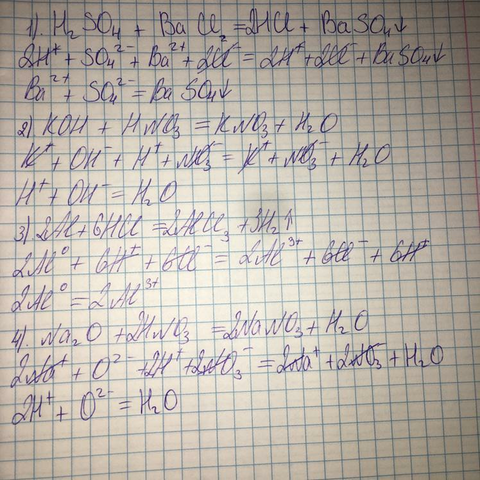 1). H₂SO₄ + BaCl₂ = 2HCl + BaSO₄↓
2H⁺ + SO₄²⁻ + Ba²⁺ + 2Cl⁻ = 2H⁺ + 2Cl⁻ + BaSO₄↓
Ba²⁺ + SO₄²⁻ = BaSO₄↓
2) KOH + HNO₃ = KNO₃ + H₂O
K⁺ + OH⁻ + H⁺ + NO₃⁻ = K⁺ + NO₃⁻ + H₂O
H⁺ + OH⁻ = H₂O
3) 2Al + 6HCl = 2AlCl₃ + 3H₂↑
2Al⁰ + 6H⁺ + 6Cl⁻ = 2Al³⁺ + 6Cl⁻ + 6H⁺
2Al⁰ = 2Al³⁺
4). Na₂O + 2HNO₃ = 2NaNO₃ + H₂O
2Na⁺ + O²⁻ + 2H⁺ + 2NO₃⁻ = 2Na⁺ + 2NO₃⁻ + H₂O
2H⁺ + O²⁻ = H₂O